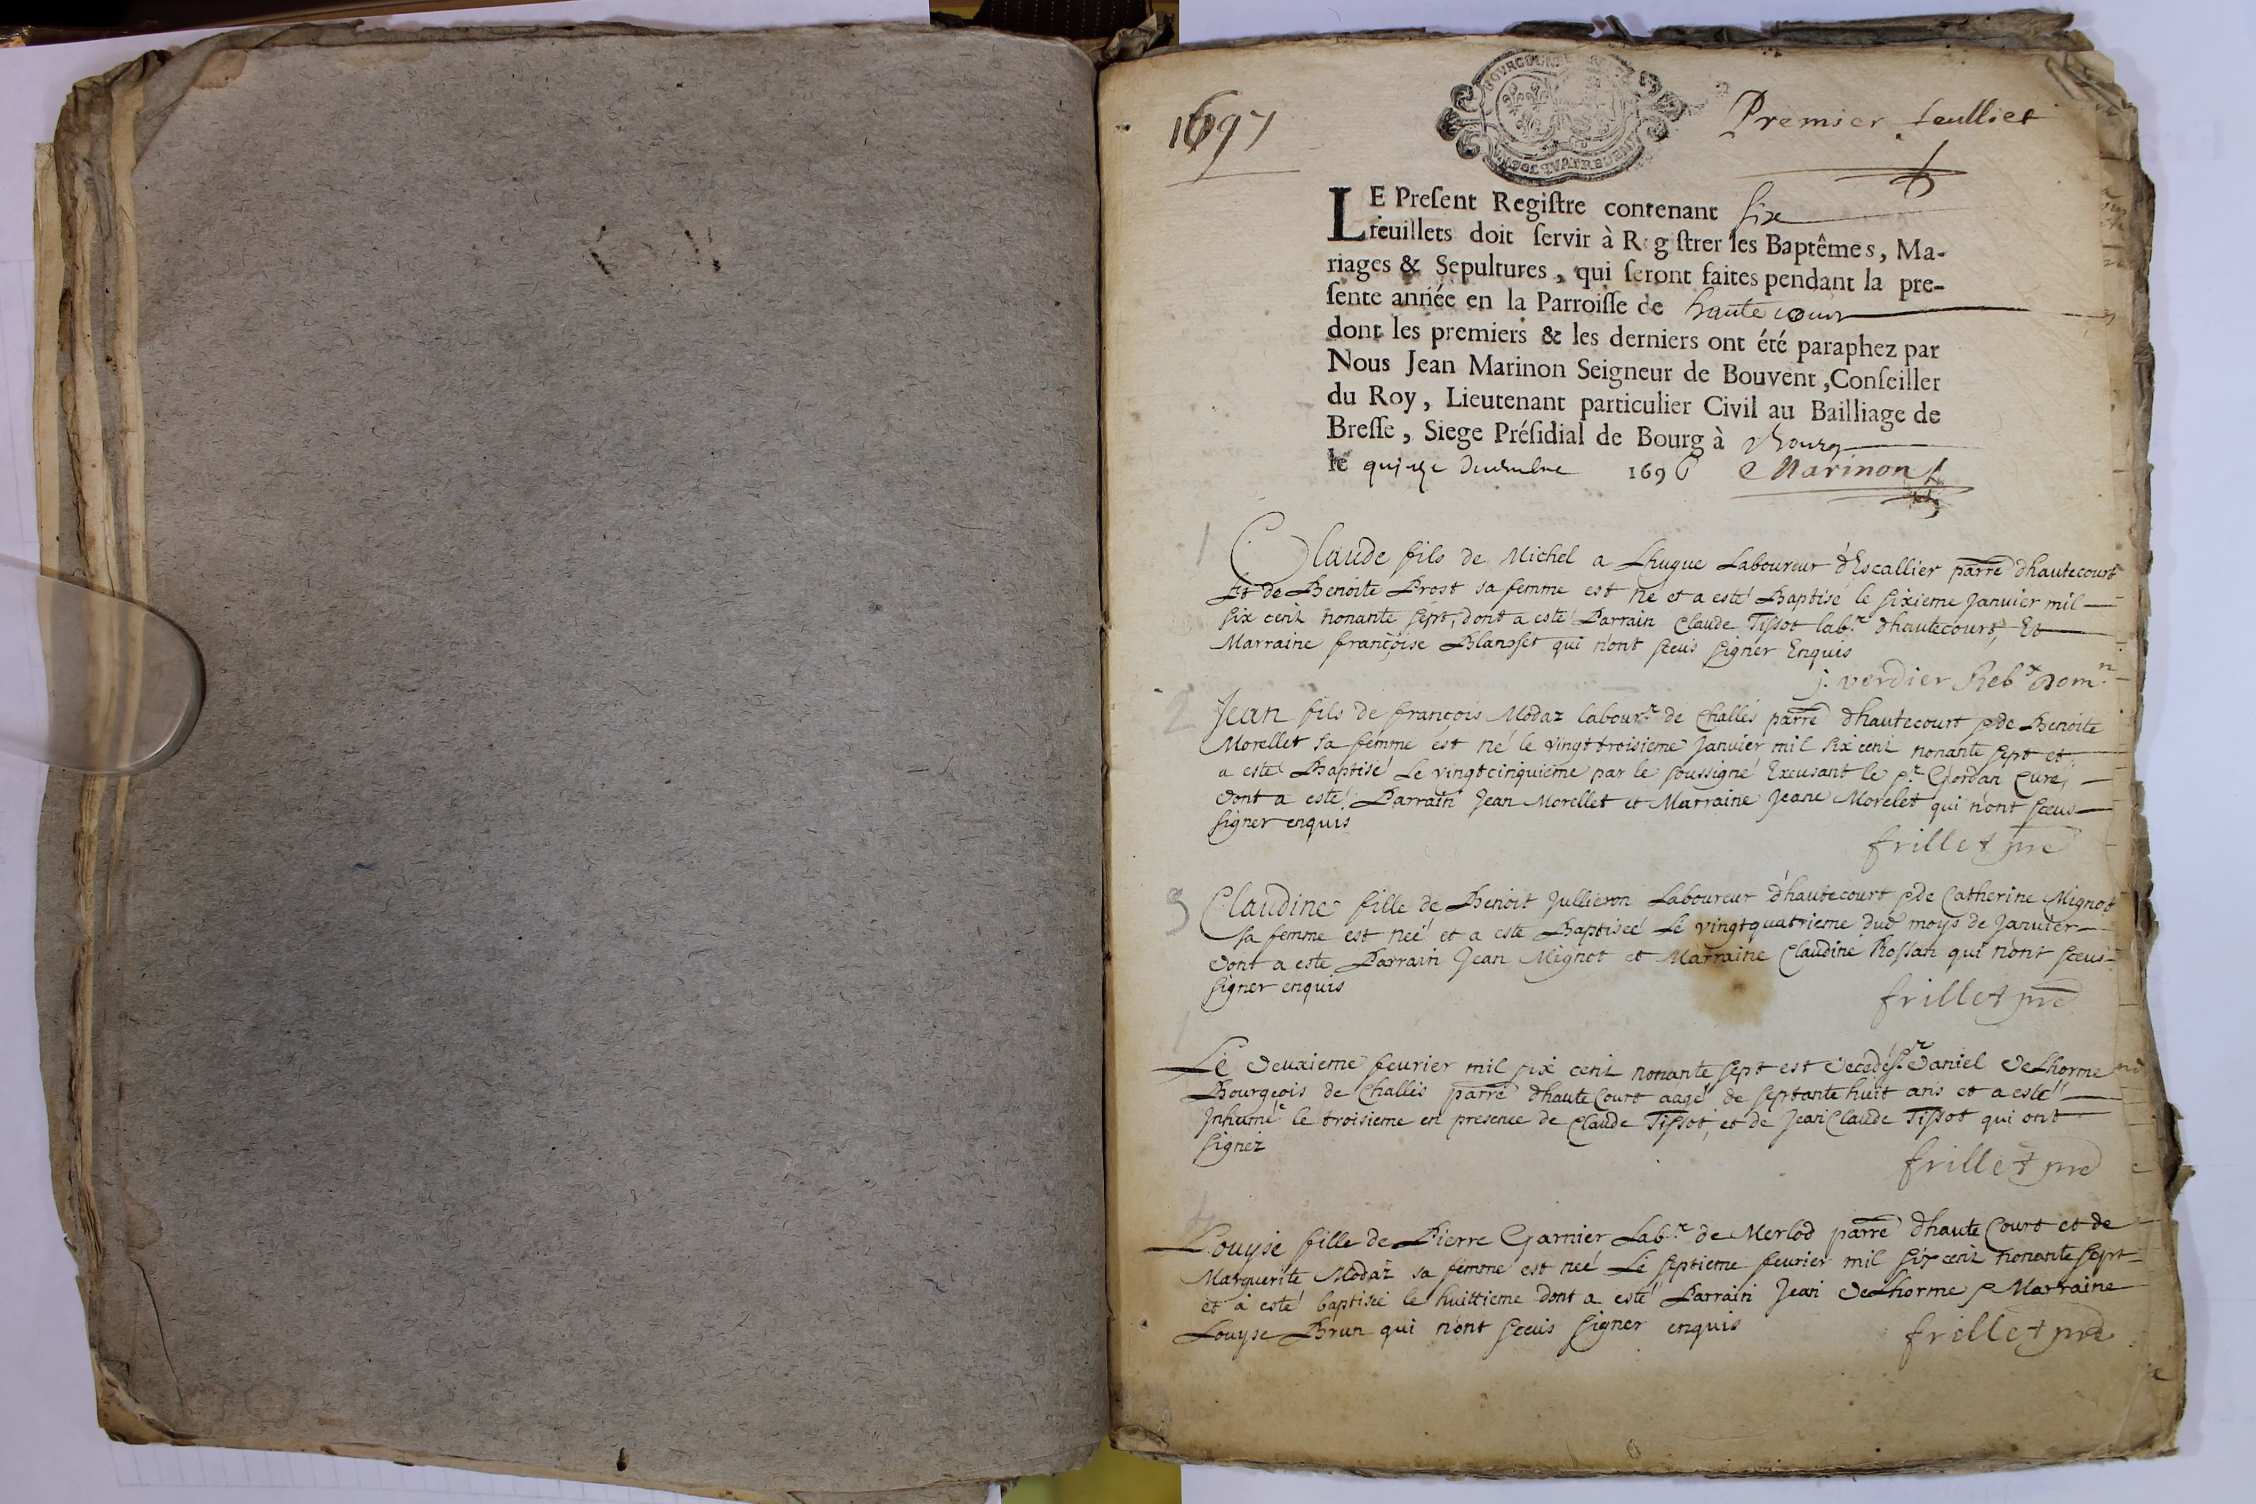 1697
Premier feulliet
LE Preſent Regiſtre contenant six
feuillets doit ſervir à R g ſtrer les Baptêmes, Ma-
riages & Sepultures, qui ſeront faites pendant la pre-
ſente année en la Parroiſſe de hautecour
dont les premiers & les derniers ont été paraphez par
Nous Jean Marinon Seigneur de Bouvent, Conſeiller
du Roy, Lieutenant particulier Civil au Bailliage de
Breſſe, Siege Préſidial de Bourg à Bourg
le quinze Decembre 1696 Marinon
1
Claude fils de Michel a Lhuque Laboureur d'Escallier parre dhautecourt
et de Benoite Prost sa femme est né et a esté Baptisé le sixieme Janvier mil
six cent nonante sept, dont a esté Parrain Claude Tissot lab.r dhautecourt, Et
Marraine françoise qui n'ont sceus signer Enquis
j. verdier
2
Jean fils de françois Modaz labour.r de Challes parre dhautecourt & de Benoite
Morellet sa femme est né le vingt troisieme Janvier mil six cent nonante sept et
a esté Baptisé Le vingtcinquieme par le soussigné Excusant le s.r Gordan Curé,
dont a esté Parrain Jean Morellet et Marraine Jeane Morelet qui n'ont sceus
signer enquis
frillet pre
3
Claudine fille de Benoit Jullieron Laboureur d'hautecourt & de Catherine Mignot
sa femme est neé et a esté Baptiseé Le vingtquatrieme dud moys de Janvier
dont a esté Parrain Jean Mignot et Marraine Claudine Rossan qui n'ont sceus
signer enquis
frillet pre
1
Le deuxieme fevrier mil six cent nonante sept est decedé s.r daniel deLhorme
Bourgeois de Challes parre dhauteCourt aagé de septante huit ans et a esté
Inhumé le troisieme en presence de Claude Tissot, et de JeanClaude Tissot qui ont
signez
frillet pre
4
Louyse fille de Pierre Garnier Lab.r de Merlod parre dhauteCourt et de
Marguerite Modaz sa femme est neé Le septieme fevrier mil six cent nonante sept
et a esté baptiseé le huittieme dont a esté Parrain Jean deLhorme & Marraine
Louyse Brun qui n'ont sceus signer enquis
frillet pre